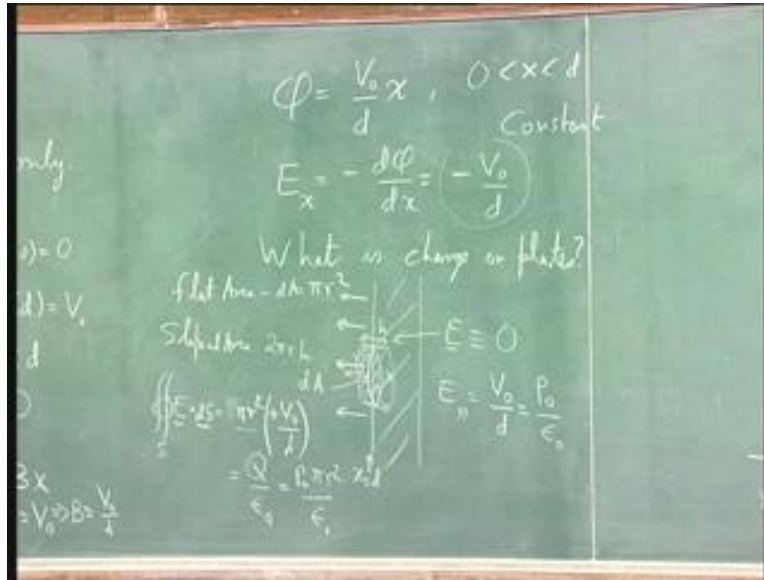 φ = V₀/d x , 0 < x < d
Constant
Eₓ = - dφ/dx = - V₀/d
What is charge on plates?
Flat Area - dA = πr²
Sloped Area 2πrh
h
E ≡ 0
dA
∯ E · dS = πr² (+V₀/d)
Eₙ = V₀/d = ρ₀/ε₀
= Q/ε₀ = ρ₀πr²/ε₀ x = d
only.
) = 0
d) = V₀
d
3x
= V₀ ⇒ B = V₀/d